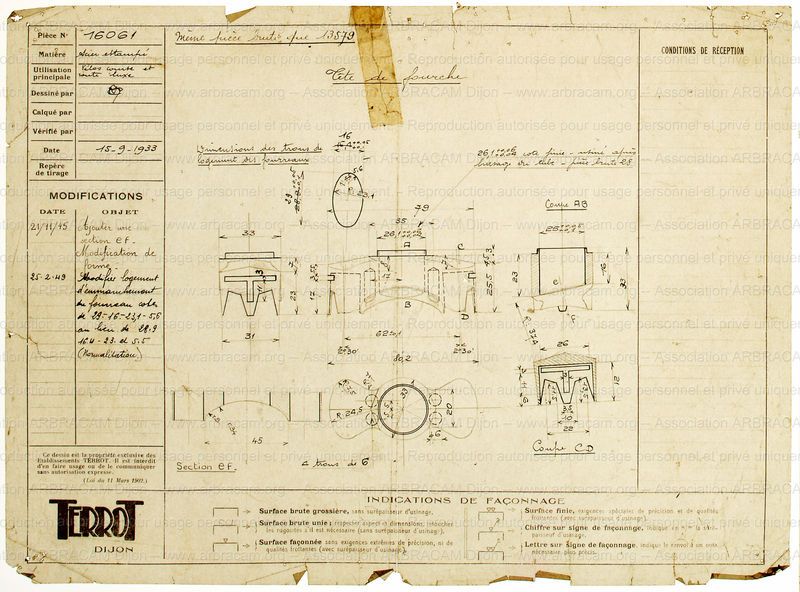 Pièce N° 16061
Matière Acier estampé
Utilisation
principale
Vélos course et
route luxe
Dessiné par
Calqué par
Vérifié par
Date 15-9-1933
Repère
de tirage
MODIFICATIONS
DATE OBJET
21/11/45 Ajouter une
section EF.
Modification de
forme
25-2-49 Modifié logement
d'emmanchement
du fourreau cotes
de 29-16-23,1-5,6
au lieu de 28.9
16.4-23. et 5.5
(Normalisation)
Ce dessin est la propriété exclusive des
Etablissements TERROT. Il est interdit
d'en faire usage ou de le communiquer
sans autorisation expresse.
(Loi du 11 Mars 1902.)
TERROT
DIJON
Même pièce brute que 13579
Tête de fourche
CONDITIONS DE RÉCEPTION
Dimensions des trous de
logement des fourreaux
16
5,6
23,1
29
79
35
A
C
B
D
33
31
23
7
17
62±0,1
80,2
2°30'
2°30'
25,5
Coupe AB
23
16
33
8
26
12
10
22
Coupe CD
R. 24,5
33
20
6
4 trous de 6
45
Section EF.
INDICATIONS DE FAÇONNAGE
Surface brute grossière, sans surépaisseur d'usinage.
Surface brute unie; respecter aspect et dimensions, retoucher
les rugosités s'il est nécessaire (sans surépaisseur d'usinage).
Surface façonnée sans exigences extrêmes de précision, ni de
qualités frottantes (avec surépaisseur d'usinage).
Surface finie, exigences spéciales de précision et de qualités
frottantes (avec surépaisseur d'usinage).
Chiffre sur signe de façonnage, indique en m/m la surépaisseur d'usinage.
Lettre sur signe de façonnage, indique le renvoi à un texte
nécessaire plus précis.
www.arbracam.org – Association ARBRACAM Dijon – www.arbracam.org – Association ARBRACAM Dijon
Reproduction autorisée pour usage personnel et privé uniquement